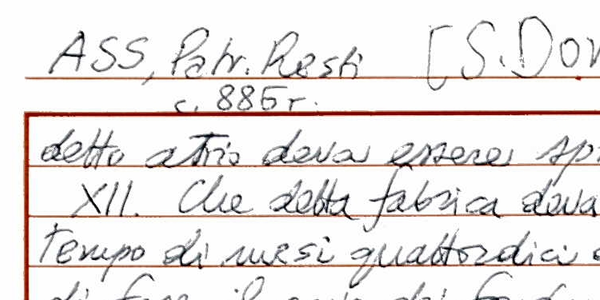 ASS, Patr. Resti [S. Dom
c. 885r.
detto atrio deva essere sp
XII. Che detta fabrica deva
Tempo di mesi quattordici
di fare il